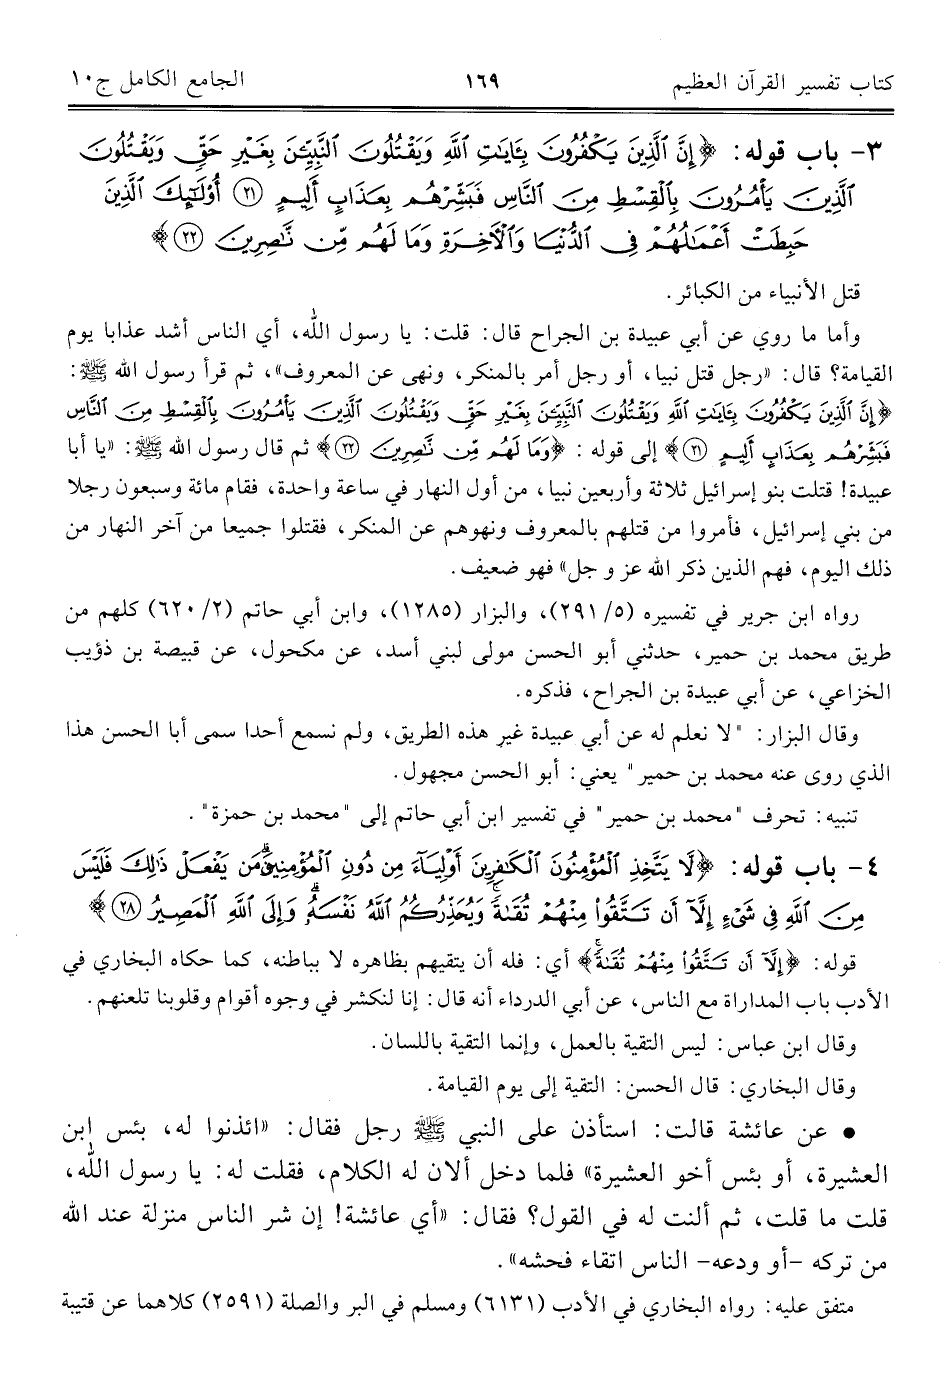 كتاب تفسير القرآن العظيم ١٦٩ الجامع الكامل ج١٠
٣- باب قوله: ﴿إِنَّ ٱلَّذِينَ يَكْفُرُونَ بِـَٔايَٰتِ ٱللَّهِ وَيَقْتُلُونَ ٱلنَّبِيِّـۧنَ بِغَيْرِ حَقٍّ وَيَقْتُلُونَ
ٱلَّذِينَ يَأْمُرُونَ بِٱلْقِسْطِ مِنَ ٱلنَّاسِ فَبَشِّرْهُم بِعَذَابٍ أَلِيمٍ ٢١ أُو۟لَٰٓئِكَ ٱلَّذِينَ
حَبِطَتْ أَعْمَٰلُهُمْ فِى ٱلدُّنْيَا وَٱلْـَٔاخِرَةِ وَمَا لَهُم مِّن نَّٰصِرِينَ ٢٢﴾
قتل الأنبياء من الكبائر.
وأما ما روي عن أبي عبيدة بن الجراح قال: قلت: يا رسول الله، أي الناس أشد عذابا يوم
القيامة؟ قال: «رجل قتل نبيا، أو رجل أمر بالمنكر، ونهى عن المعروف»، ثم قرأ رسول الله ﷺ:
﴿إِنَّ ٱلَّذِينَ يَكْفُرُونَ بِـَٔايَٰتِ ٱللَّهِ وَيَقْتُلُونَ ٱلنَّبِيِّـۧنَ بِغَيْرِ حَقٍّ وَيَقْتُلُونَ ٱلَّذِينَ يَأْمُرُونَ بِٱلْقِسْطِ مِنَ ٱلنَّاسِ
فَبَشِّرْهُم بِعَذَابٍ أَلِيمٍ ٢١﴾ إلى قوله: ﴿وَمَا لَهُم مِّن نَّٰصِرِينَ ٢٢﴾ ثم قال رسول الله ﷺ: «يا أبا
عبيدة! قتلت بنو إسرائيل ثلاثة وأربعين نبيا، من أول النهار في ساعة واحدة، فقام مائة وسبعون رجلا
من بني إسرائيل، فأمروا من قتلهم بالمعروف ونهوهم عن المنكر، فقتلوا جميعا من آخر النهار من
ذلك اليوم، فهم الذين ذكر الله عز و جل» فهو ضعيف.
رواه ابن جرير في تفسيره (٥/ ٢٩١)، والبزار (١٢٨٥)، وابن أبي حاتم (٢/ ٦٢٠) كلهم من
طريق محمد بن حمير، حدثني أبو الحسن مولى لبني أسد، عن مكحول، عن قبيصة بن ذؤيب
الخزاعي، عن أبي عبيدة بن الجراح، فذكره.
وقال البزار: "لا نعلم له عن أبي عبيدة غير هذه الطريق، ولم نسمع أحدا سمى أبا الحسن هذا
الذي روى عنه محمد بن حمير" يعني: أبو الحسن مجهول.
تنبيه: تحرف "محمد بن حمير" في تفسير ابن أبي حاتم إلى "محمد بن حمزة".
٤- باب قوله: ﴿لَّا يَتَّخِذِ ٱلْمُؤْمِنُونَ ٱلْكَٰفِرِينَ أَوْلِيَآءَ مِن دُونِ ٱلْمُؤْمِنِينَ ۖ وَمَن يَفْعَلْ ذَٰلِكَ فَلَيْسَ
مِنَ ٱللَّهِ فِى شَىْءٍ إِلَّآ أَن تَتَّقُوا۟ مِنْهُمْ تُقَىٰةً ۗ وَيُحَذِّرُكُمُ ٱللَّهُ نَفْسَهُۥ ۗ وَإِلَى ٱللَّهِ ٱلْمَصِيرُ ٢٨﴾
قوله: ﴿إِلَّآ أَن تَتَّقُوا۟ مِنْهُمْ تُقَىٰةً ۗ﴾ أي: فله أن يتقيهم بظاهره لا بباطنه، كما حكاه البخاري في
الأدب باب المداراة مع الناس، عن أبي الدرداء أنه قال: إنا لنكشر في وجوه أقوام وقلوبنا تلعنهم.
وقال ابن عباس: ليس التقية بالعمل، وإنما التقية باللسان.
وقال البخاري: قال الحسن: التقية إلى يوم القيامة.
• عن عائشة قالت: استأذن على النبي ﷺ رجل فقال: «ائذنوا له، بئس ابن
العشيرة، أو بئس أخو العشيرة» فلما دخل ألان له الكلام، فقلت له: يا رسول الله،
قلت ما قلت، ثم ألنت له في القول؟ فقال: «أي عائشة! إن شر الناس منزلة عند الله
من تركه -أو ودعه- الناس اتقاء فحشه».
متفق عليه: رواه البخاري في الأدب (٦١٣١) ومسلم في البر والصلة (٢٥٩١) كلاهما عن قتيبة